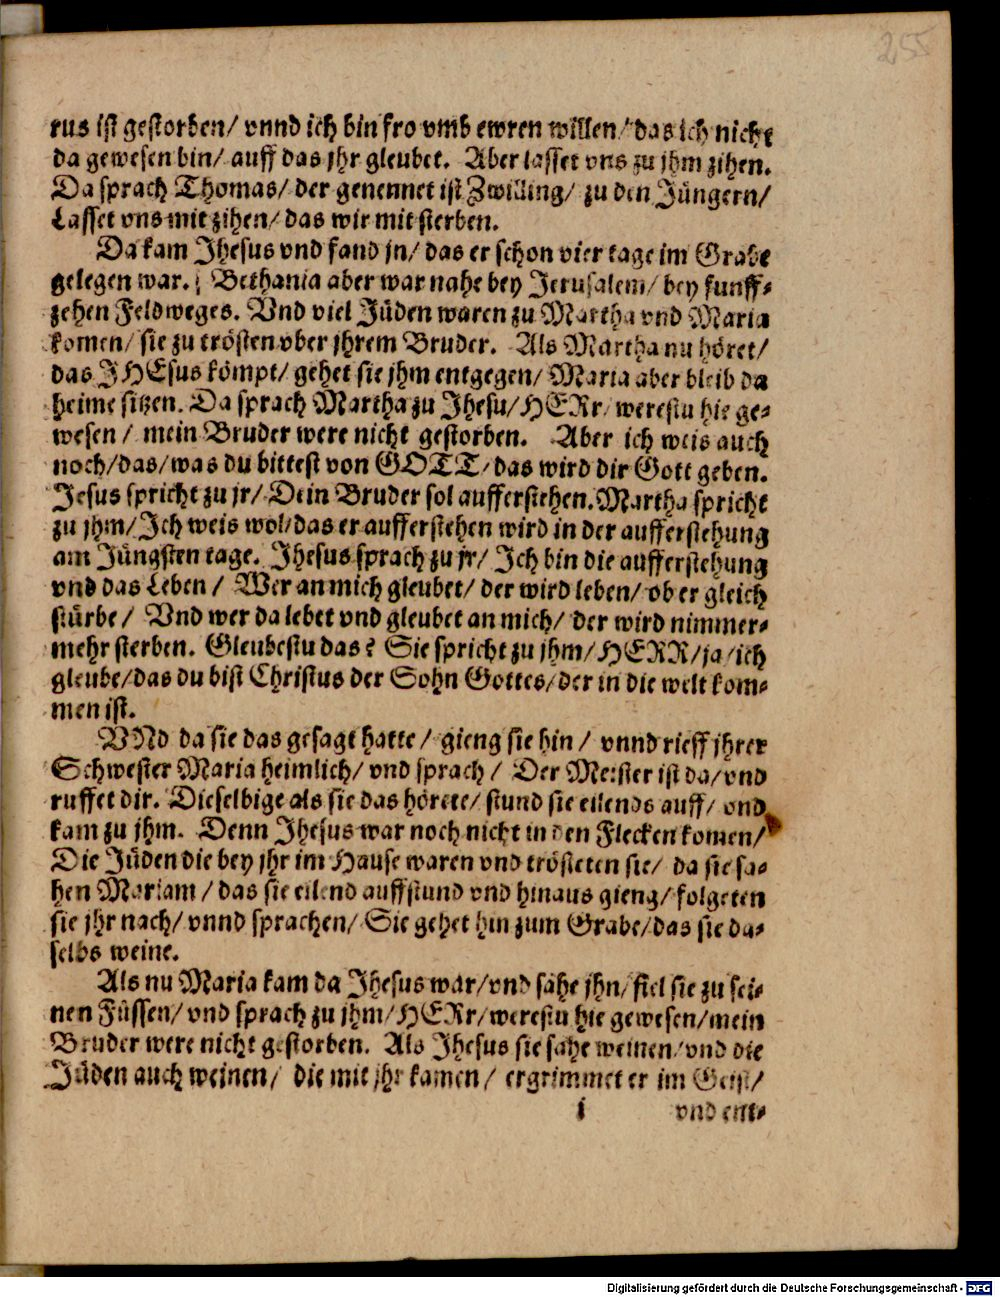 255
rus ist gestorben/ vnnd ich bin fro vmb ewren willen/ das ich nicht
da gewesen bin/ auff das jhr gleubet. Aber lasset vns zu jhm zihen.
Da sprach Thomas/ der genennet ist Zwilling/ zu den Jüngern/
Lasset vns mit zihen/ das wir mit sterben.
Da kam Jhesus vnd fand jn/ das er schon vier tage im Grabe
gelegen war. Bethania aber war nahe bey Jerusalem/ bey funff-
zehen Feldweges. Vnd viel Jüden waren zu Martha vnd Maria
komen/ sie zu trösten vber jhrem Bruder. Als Martha nu höret/
das JHEsus kömpt/ gehet sie jhm entgegen/ Maria aber bleib da
heime sitzen. Da sprach Martha zu Jhesu/ HERr/ werestu hie ge-
wesen/ mein Bruder were nicht gestorben. Aber ich weis auch
noch/ das/ was du bittest von GOTT/ das wird dir Gott geben.
Jesus spricht zu jr/ Dein Bruder sol aufferstehen. Martha spricht
zu jhm/ Jch weis wol/ das er aufferstehen wird in der aufferstehung
am Jüngsten tage. Jhesus sprach zu jr/ Jch bin die aufferstehung
vnd das Leben/ Wer an mich gleubet/ der wird leben/ ob er gleich
stürbe/ Vnd wer da lebet vnd gleubet an mich/ der wird nimmer-
mehr sterben. Gleubestu das? Sie spricht zu jhm/ HERR/ ja/ ich
gleube/ das du bist Christus der Sohn Gottes/ der in die welt kom-
men ist.
VNd da sie das gesagt hatte/ gieng sie hin/ vnnd rieff jhrer
Schwester Maria heimlich/ vnd sprach/ Der Meister ist da/ vnd
ruffet dir. Dieselbige als sie das hörete/ stund sie eilends auff/ vnd
kam zu jhm. Denn Jhesus war noch nicht in den Flecken komen/
Die Jüden die bey jhr im Hause waren vnd trösteten sie/ da sie sa-
hen Mariam/ das sie eilend auffstund vnd hinaus gieng/ folgeten
sie jhr nach/ vnnd sprachen/ Sie gehet hin zum Grabe/ das sie da-
selbs weine.
Als nu Maria kam da Jhesus war/ vnd sahe jhn/ fiel sie zu sei-
nen Füssen/ vnd sprach zu jhm/ HERr/ werestu hie gewesen/ mein
Bruder were nicht gestorben. Als Jhesus sie sahe weinen/ vnd die
Jüden auch weinen/ die mit jhr kamen/ ergrimmet er im Geist/
i vnd ent-
Digitalisierung gefördert durch die Deutsche Forschungsgemeinschaft - DFG